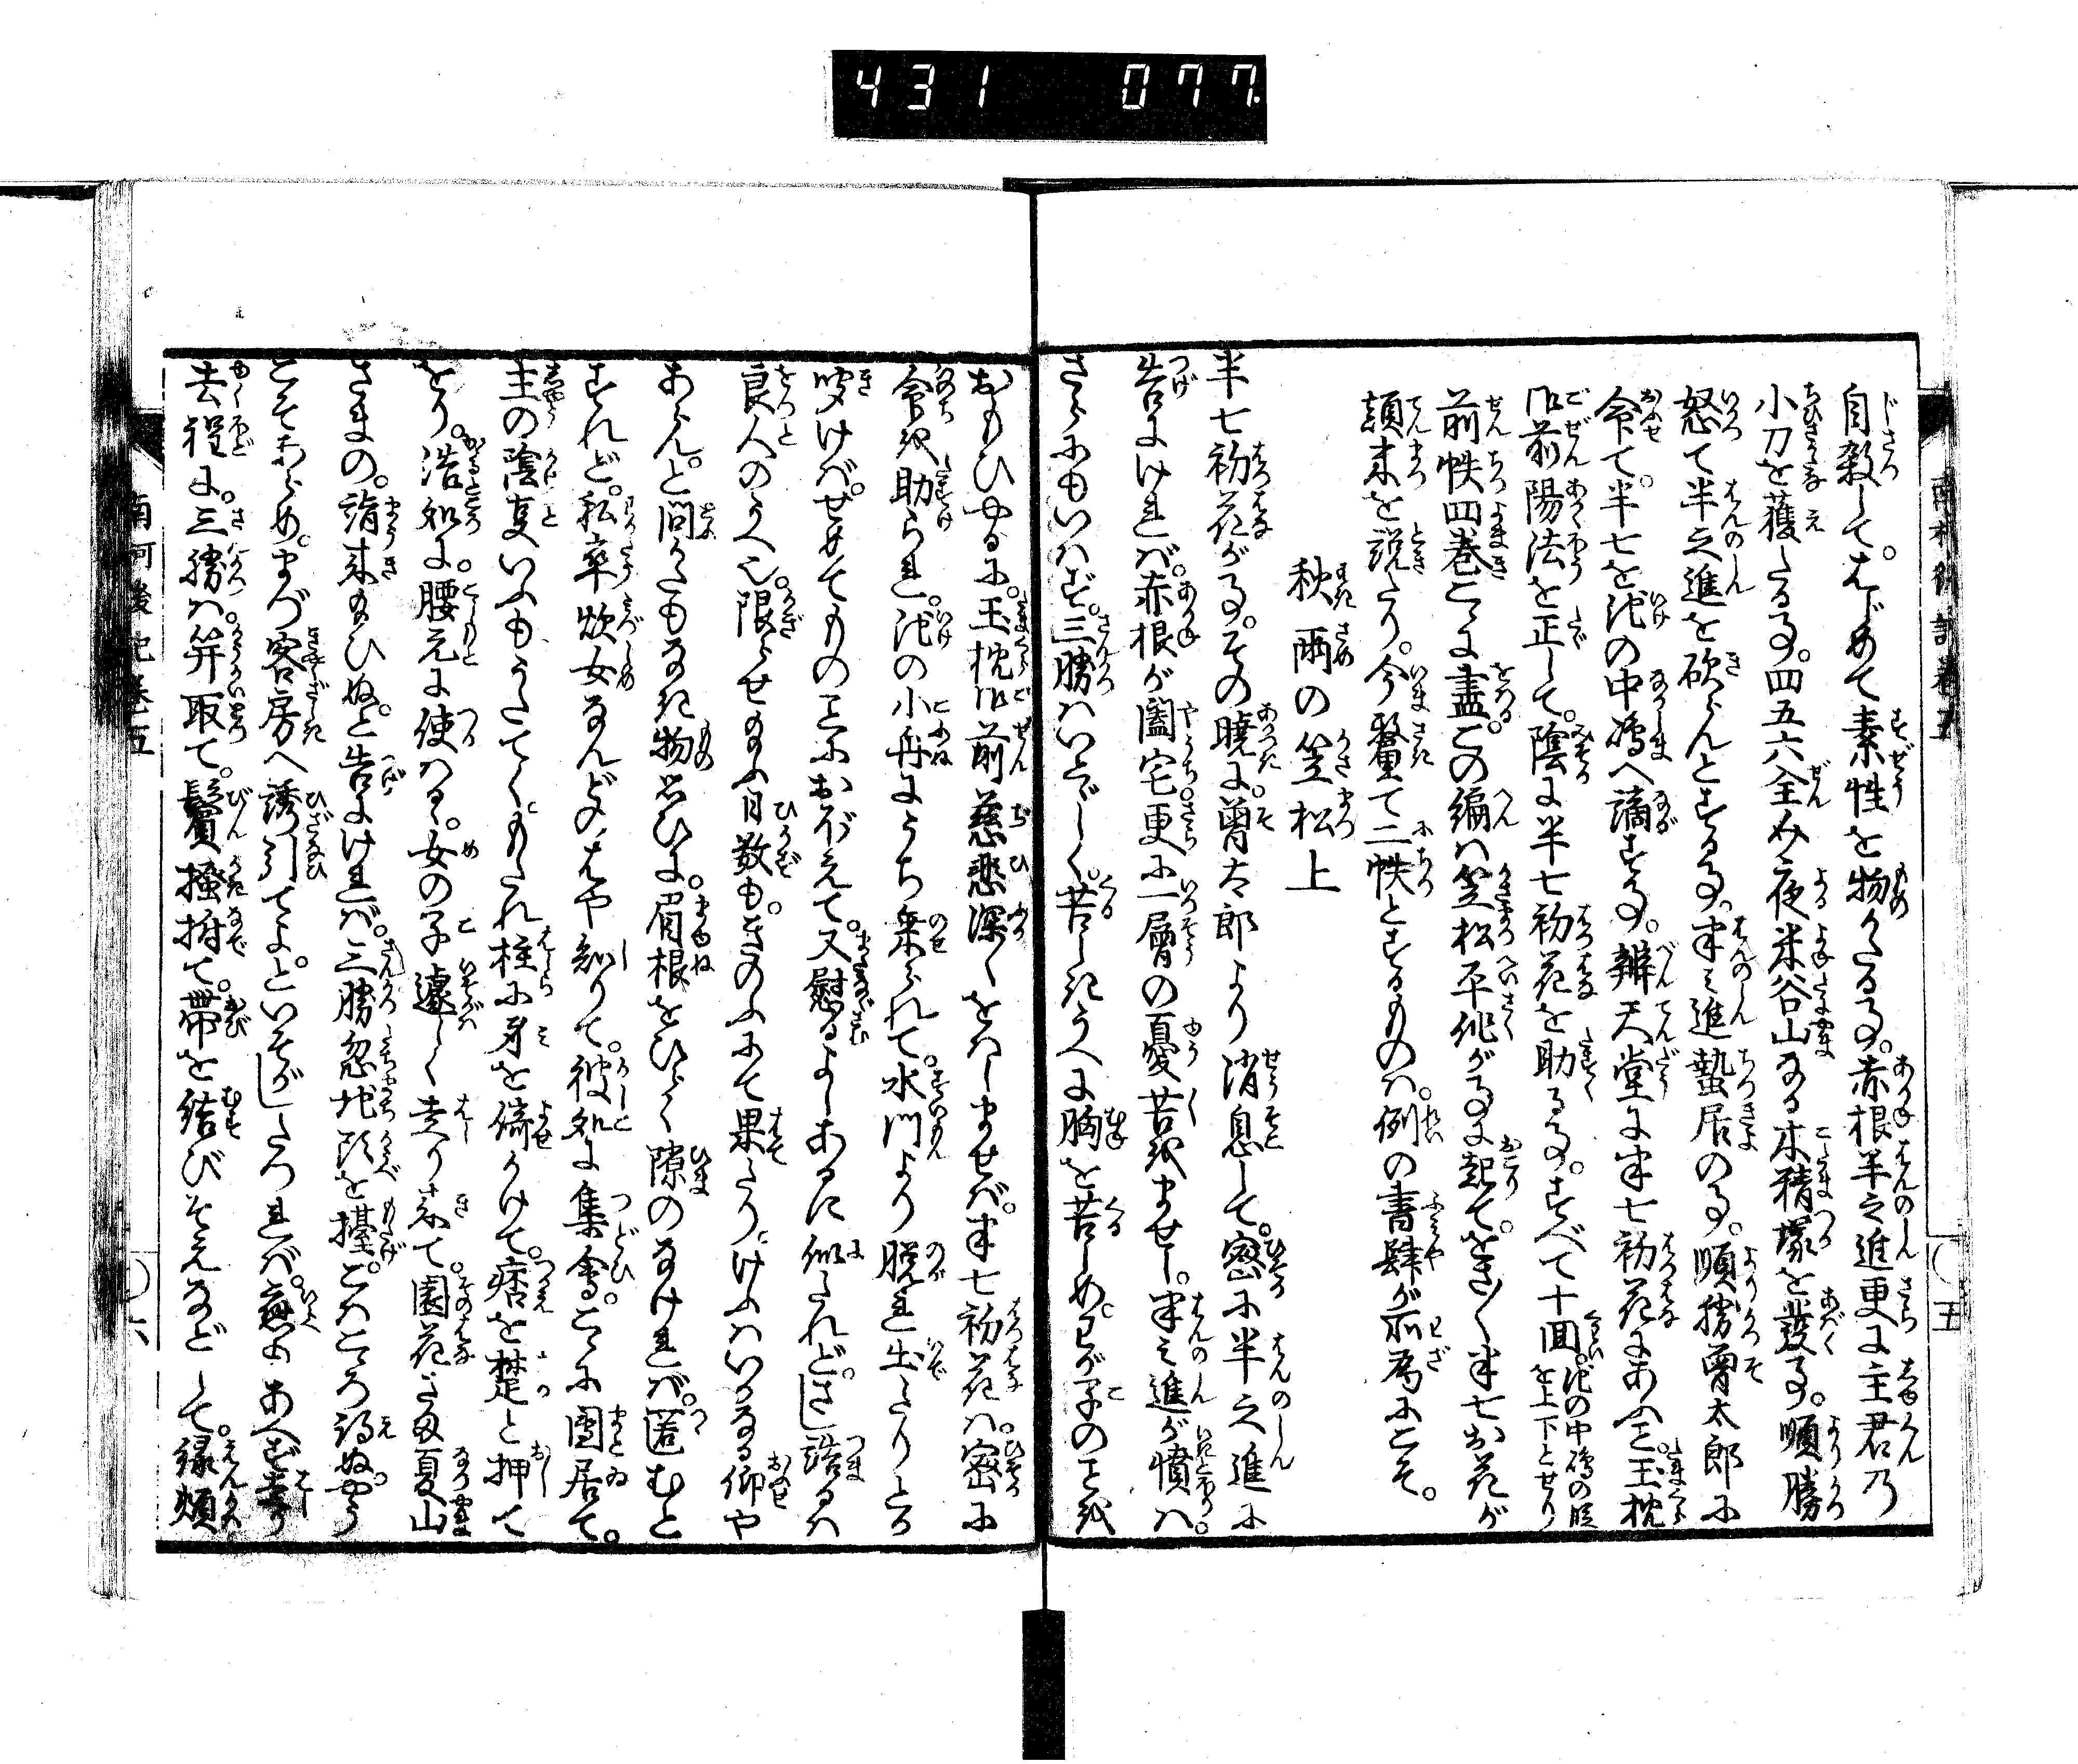 431 077
自殺して。はじめて素性を物がたる事。赤根半之進更に主君乃
小刀を獲たる事。四五六全み夜米谷山なる木精塚を發る事。順勝
怒て半之進を砍らんとする事。半之進蟄居の事。順勝曽太郎に
令て。半七を池の中嶋へ謫する事。辨天堂に半七初花にあふて。玉枕
御前陽法を正して。陰に半七初花を助る事。すべて十回。池の中嶋の段を上下とせり
前帙四巻こゝに盡。この編は笠松平作が事に起て。をさ〳〵半七お花が
顛末を説たり。今釐て二帙とするものは。例の書肆が所為にこそ。
秋雨の笠松上
半七初花が事。その曉に。曽太郎より消息して。密に半之進に
告にければ。赤根が闔宅更に一層の憂苦をませし。半之進が憤は
さらにもいはず。三勝はいとゞしく。苦しきうへに胸を苦しめ。わが子のことを
おもひやるに。玉枕御前慈悲深くをはしませば。半七初花は。密に
命を助られ。池の小舟にうち乗られて。水門より脱れ出たりとか
聞けば。せめてものことにおぼえて。又慰るよしあるに似たれど。さし詰るは
良人のうへ也。限らせ給ふ日数も。きのふにて果たり。けふはいかなる仰や
あらんと問かたもなき物思ひに。眉根をひらく隙のなければ。匿むと
すれど。私卒炊女なんども。はや知りて。彼処に集會。こゝに團居て。
主の陰言いふもうたてく。もたれ柱に身を倚かけて。痞を楚と押て
をり。浩処に。腰元に使はるゝ。女の子遽しく走り来て。園花さま夏山
さまの。詣来給ひぬと告にければ。三勝忽地頭を擡。こはこゝろ得ぬやう
こそあらめ。まづ客房へ誘引てよ。といそがしたつれば。應もあへず走り
去程に。三勝は笄取て。鬢掻拊て。帯を結びそえなどして。縁頬